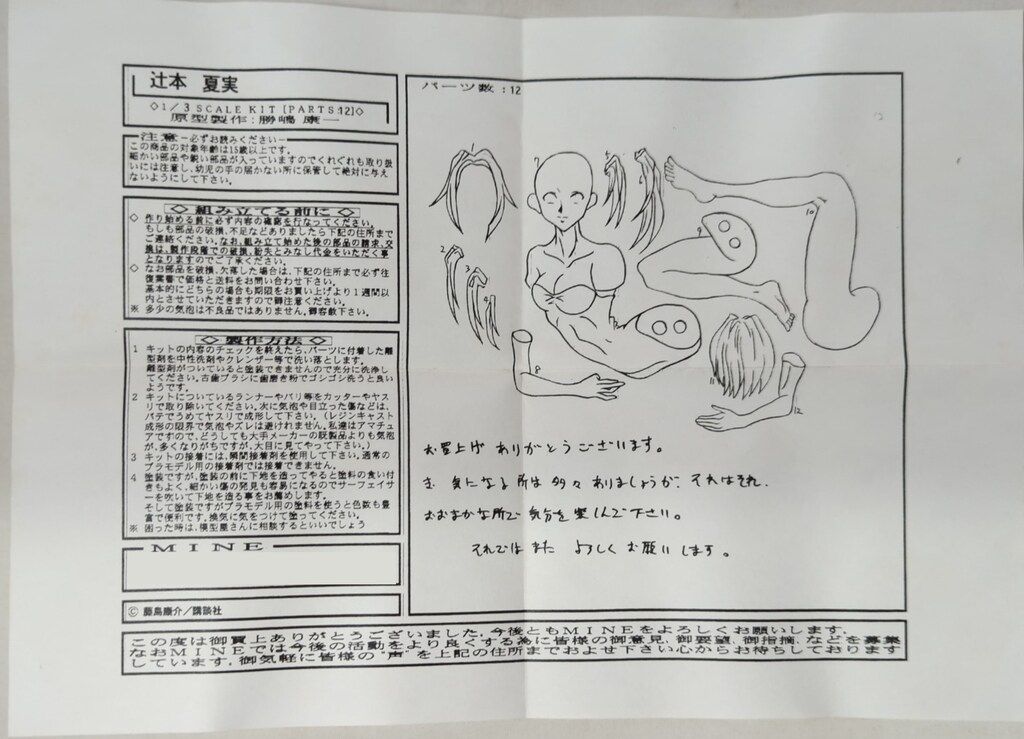 辻本 夏実
◇1/3 SCALE KIT [PARTS:12]◇
原型製作:勝嶋 康一
注意-必ずお読みください-
この商品の対象年齢は15歳以上です。
細かい部品や鋭い部品が入っていますのでくれぐれも取り扱
いには注意し、幼児の手の届かない所に保管して絶対に与え
ないようにして下さい。
◇組み立てる前に◇
◇ 作り始める前に必ず内容の確認を行なってください。
もしも部品の破損、不足などありましたら下記の住所まで
ご連絡ください。なお、組み立て始めた後の部品の請求、交
換は、製作段階での破損、紛失とみなし代金をいただく事
となりますのでご了承ください。
◇ なお部品を破損、欠落した場合は、下記の住所まで必ず往
復葉書で価格と送料をお問い合わせ下さい。
基本的にどちらの場合も期限をお買い上げより1週間以
内とさせていただきますので御注意ください。
※ 多少の気泡は不良品ではありません。御容赦下さい。
◇製作方法◇
1 キットの内容のチェックを終えたら、パーツに付着した離
型剤を中性洗剤やクレンザー等で洗い落とします。
離型剤がついていると塗装できませんので充分に洗浄し
てください。古歯ブラシに歯磨き粉でゴシゴシ洗うと良い
ようです。
2 キットについているランナーやバリ等をカッターやヤス
リで取り除いてください。次に気泡や目立った傷などは、
パテでうめてヤスリで成形して下さい。(レジンキャスト
成形の限界で気泡やズレは避けれません。私達はアマチュ
アですので、どうしても大手メーカーの既製品よりも気泡
が、多くなりがちですが、大目に見てやって下さい。)
3 キットの接着には、瞬間接着剤を使用して下さい。通常の
プラモデル用の接着剤では接着できません。
4 塗装ですが、塗装の前に下地を造ってやると塗料の食い付
きもよく、細かい傷の発見も容易になるのでサーフェイサ
ーを吹いて下地を造る事をお薦めします。
そして塗装ですがプラモデル用の塗料を使うと色数も豊
富で便利です。換気に気をつけて塗ってください。
※ 困った時は、模型屋さんに相談するといいでしょう
MINE
© 藤島康介/講談社
パーツ数:12
1
2
3
4
5
6
7
8
9
10
11
12
お買上げ ありがとうございます。
ま、気になる所は 多々 ありましょうが、それはそれ、
おおまかな所で 気分を 楽しんで下さい。
それでは また よろしく お願いします。
この度は御買上ありがとうございました。今後ともMINEをよろしくお願いします。
なおMINEでは今後の活動をより良くする為に皆様の御意見、御要望、御指摘、などを募集
しています。御気軽に皆様の"声"を上記の住所までおよせ下さい心からお待ちしております